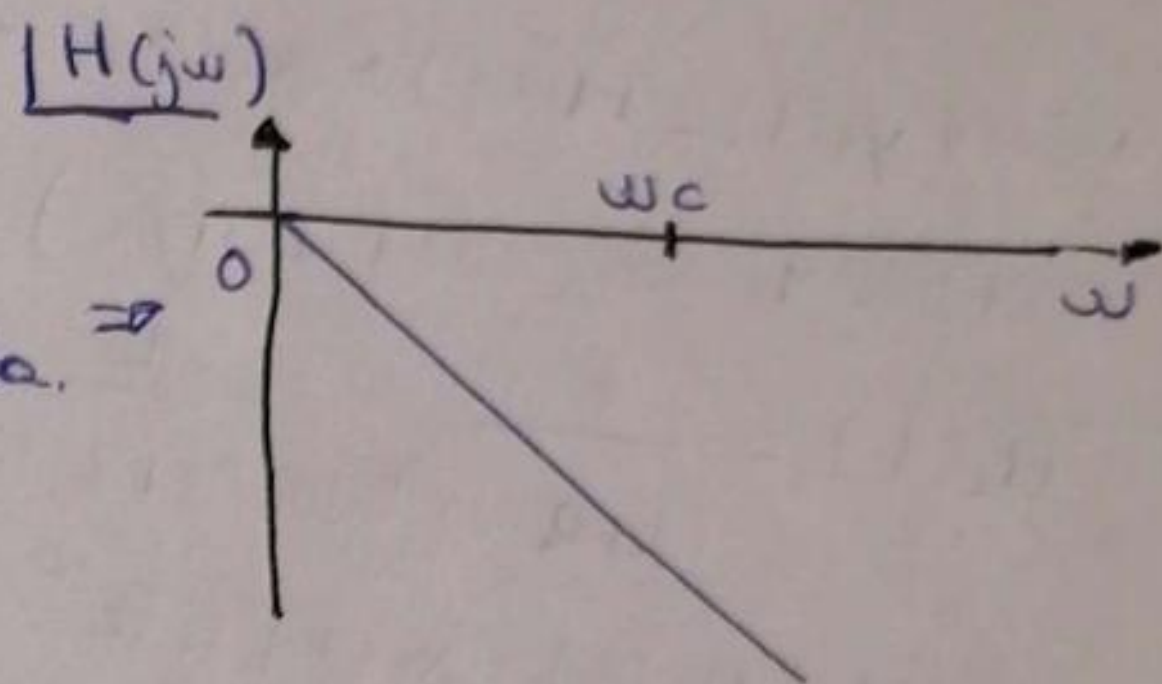 ∠H(jω)
ωc
0
ω
⇒
a.